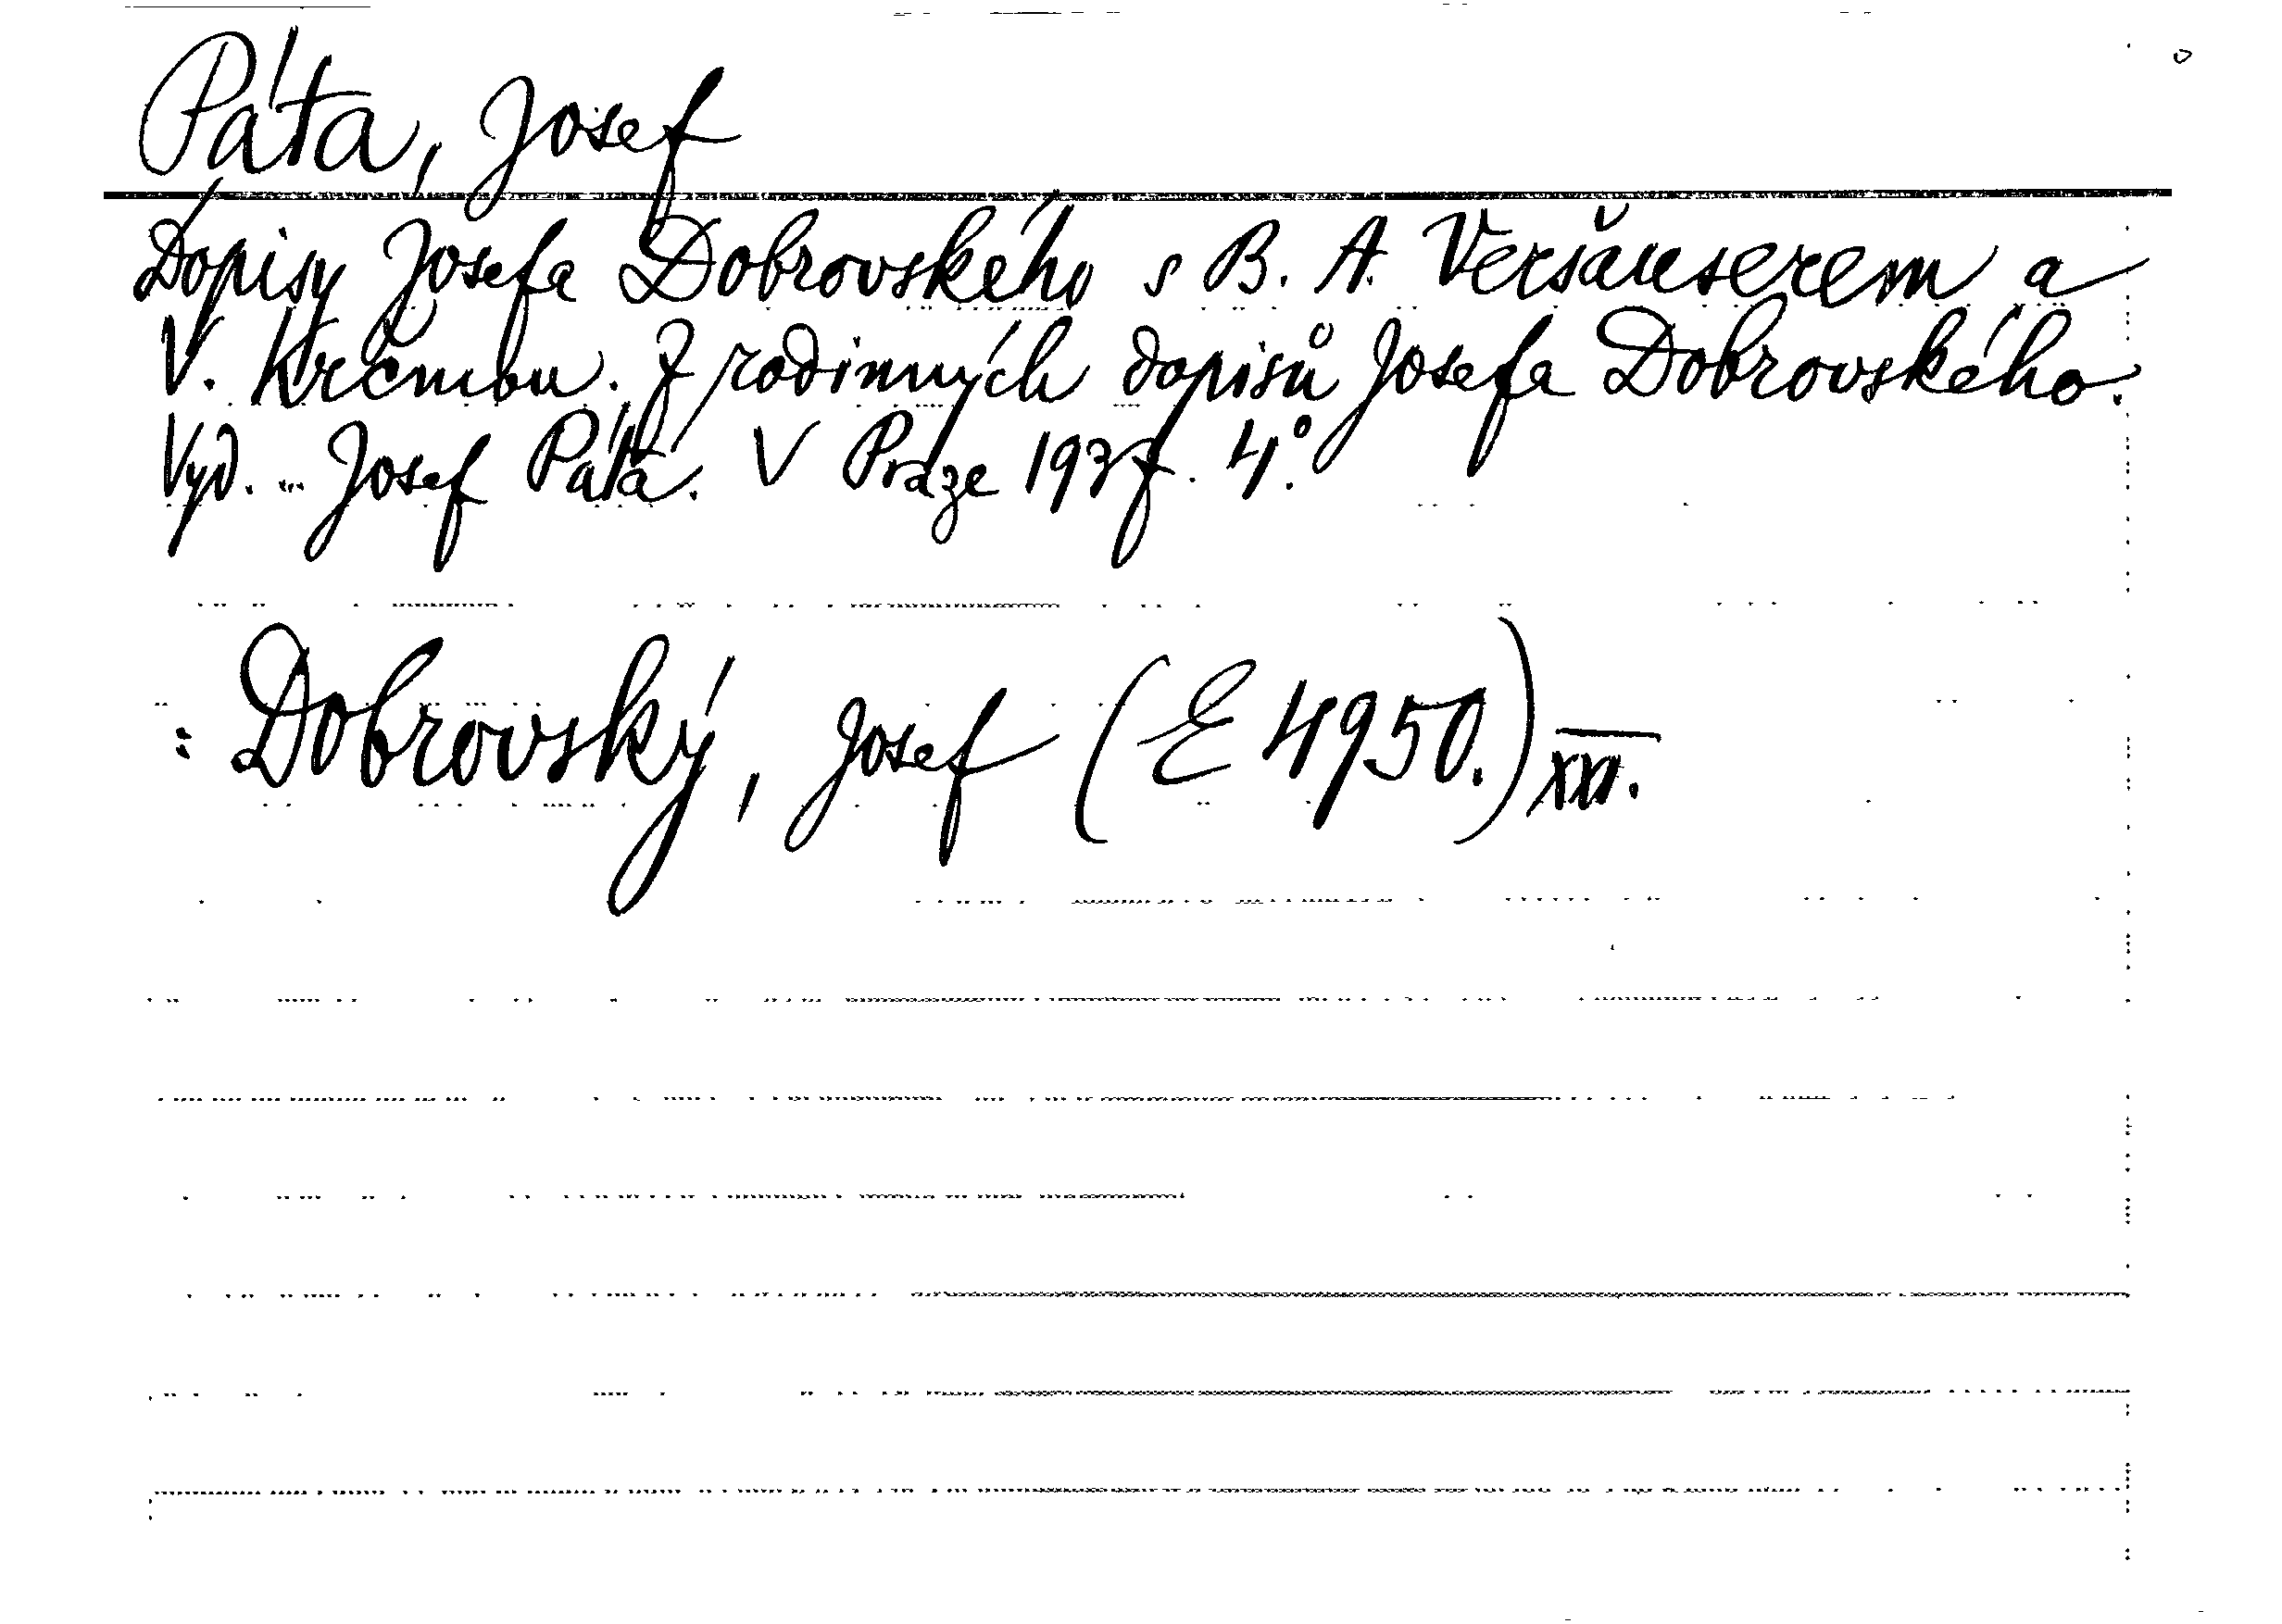 Páta, Josef
Dopisy Josefa Dobrovského s B. A. Veršauserem a
V. Krčmou. Z rodinných dopisů Josefa Dobrovského.
Vyd. ... Josef Páta. V Praze 1937. 4.°
: Dobrovský, Josef (E 4950.) XXI.